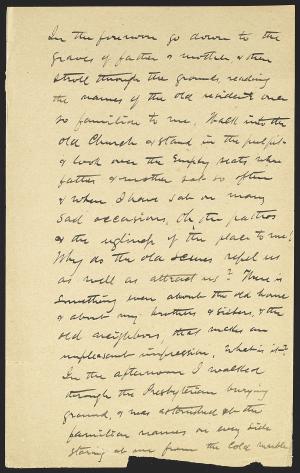 In the forenoon go down to the
graves of father & mother & then
stroll through the grounds reading
the names of the old residents once
so familiar to me. Walk into the
old Church & stand in the pulpit
& look over the Empty seats where
father & mother sat so often
& when I have sat on many
sad occasions. Oh the pathos
& the ugliness of the place to me!
Why do the old scenes repel us
as well as attract us? There is
something even about the old home
& about my brothers & sisters, & the
old neighbors, that makes an
unpleasant impression. What is it?
In the afternoon I walked
through the Presbyterian burying
ground, & was astonished at the
familiar names on every side
staring at me from the cold marble